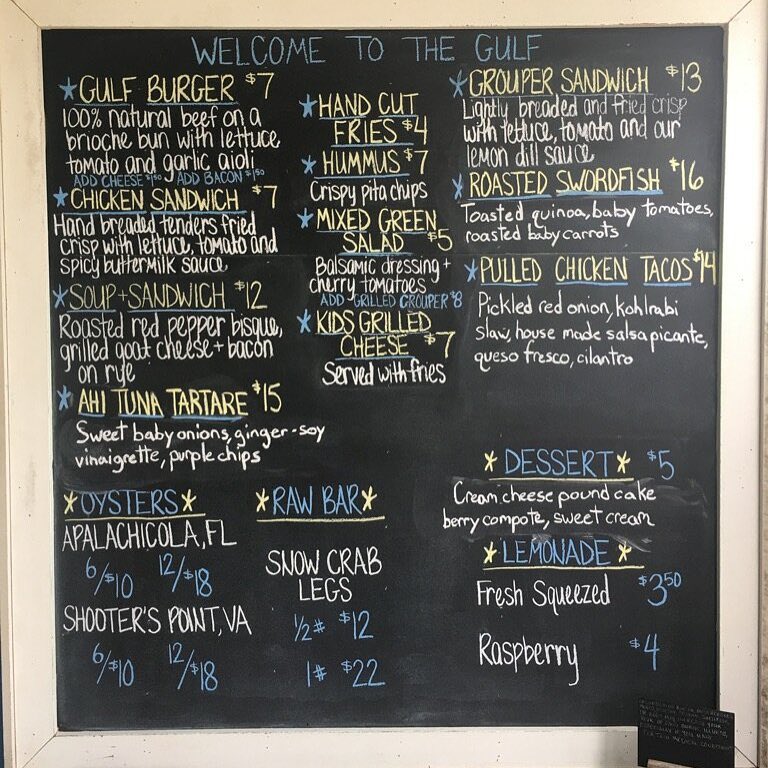 WELCOME TO THE GULF
GULF BURGER $7
100% natural beef on a
brioche bun with lettuce
tomato and garlic aioli
ADD CHEESE $1.50 ADD BACON $1.50
CHICKEN SANDWICH $7
Hand breaded tenders fried
crisp with lettuce, tomato and
spicy buttermilk sauce
SOUP + SANDWICH $12
Roasted red pepper bisque,
grilled goat cheese + bacon
on rye
AHI TUNA TARTARE $15
Sweet baby onions, ginger-soy
vinaigrette, purple chips
HAND CUT
FRIES $4
HUMMUS $7
Crispy pita chips
MIXED GREEN
SALAD $5
Balsamic dressing +
cherry tomatoes
ADD GRILLED GROUPER $8
KIDS GRILLED
CHEESE $7
Served with fries
GROUPER SANDWICH $13
Lightly breaded and fried crisp
with lettuce, tomato and our
lemon dill sauce
ROASTED SWORDFISH $16
Toasted quinoa, baby tomatoes,
roasted baby carrots
PULLED CHICKEN TACOS $14
Pickled red onion, Kohlrabi
slaw, house made salsa picante,
queso fresco, cilantro
OYSTERS
APALACHICOLA, FL
6/$10 12/$18
SHOOTER'S POINT, VA
6/$10 12/$18
RAW BAR
SNOW CRAB
LEGS
1/2# $12
1# $22
DESSERT $5
Cream cheese pound cake
berry compote, sweet cream
LEMONADE
Fresh Squeezed $3.50
Raspberry $4